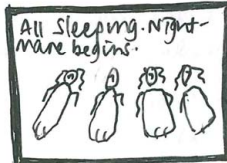 All Sleeping. Night-
mare begins.